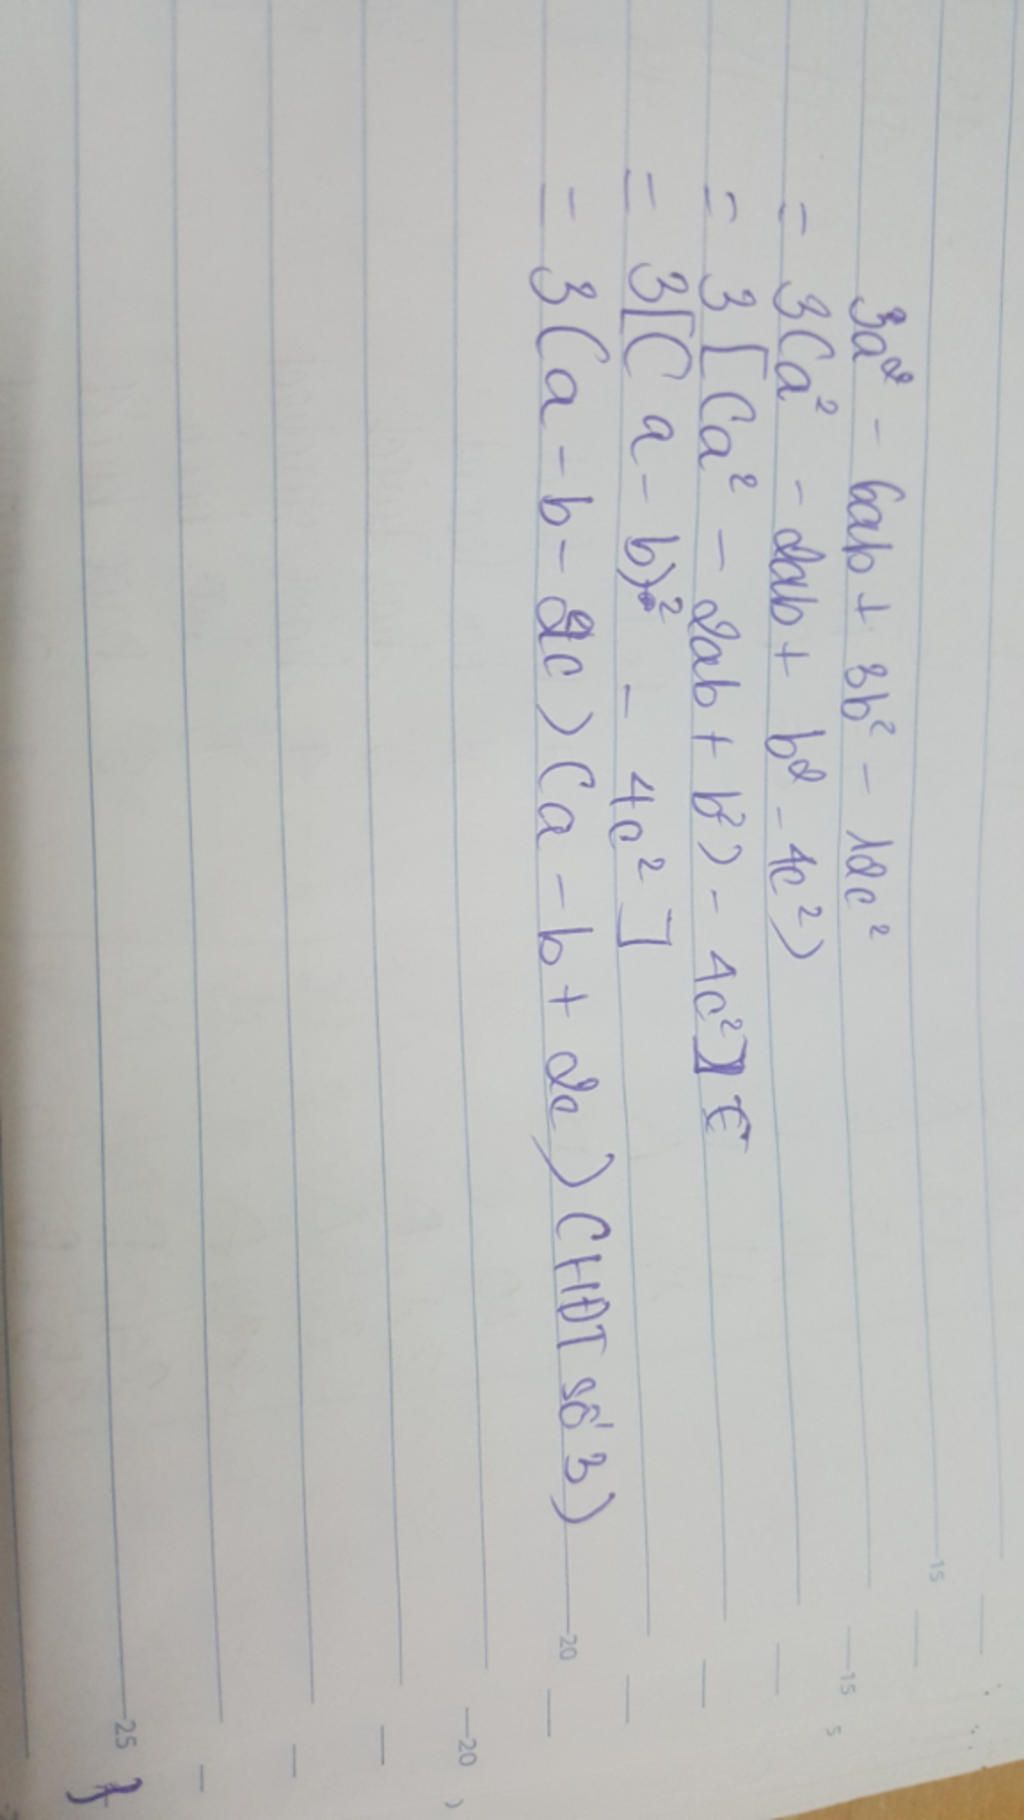 3a² - 6ab + 3b² - 12c²
= 3(a² - 2ab + b² - 4c²)
= 3[(a² - 2ab + b²) - 4c²]
= 3[(a - b)² - 4c²]
= 3(a - b - 2c)(a - b + 2c) (HĐT số 3)
15
15
5
20
20
25